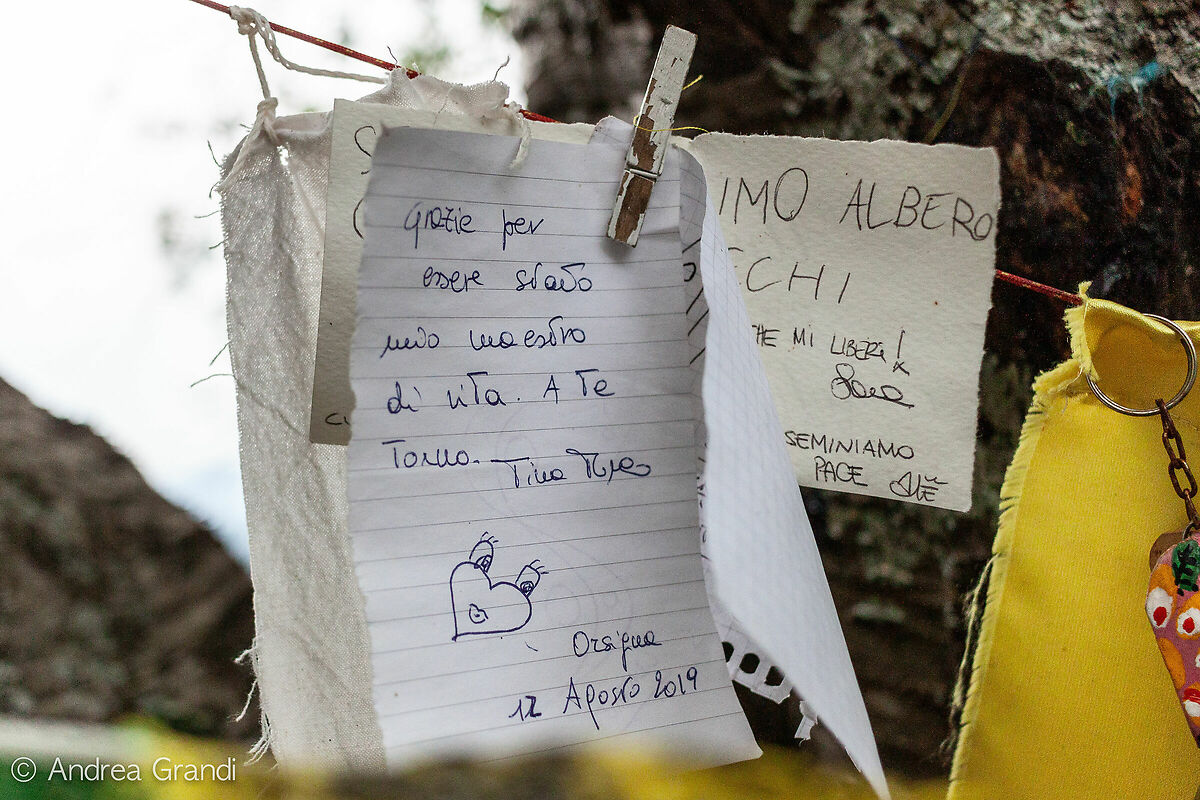 Grazie per
essere stato
mio maestro
di vita. A Te
Torno.
IMO ALBERO
ECHI
HE MI LIBERI!
SEMINIAMO
PACE
Orsigna
12 Agosto 2019
© Andrea Grandi